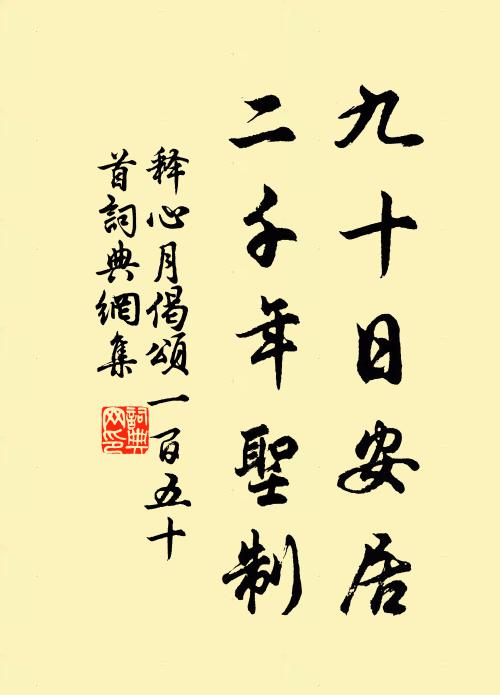 九十日安居
二千年聖制
释心月偈頌一百五十
首詞典網集
詞典
网印